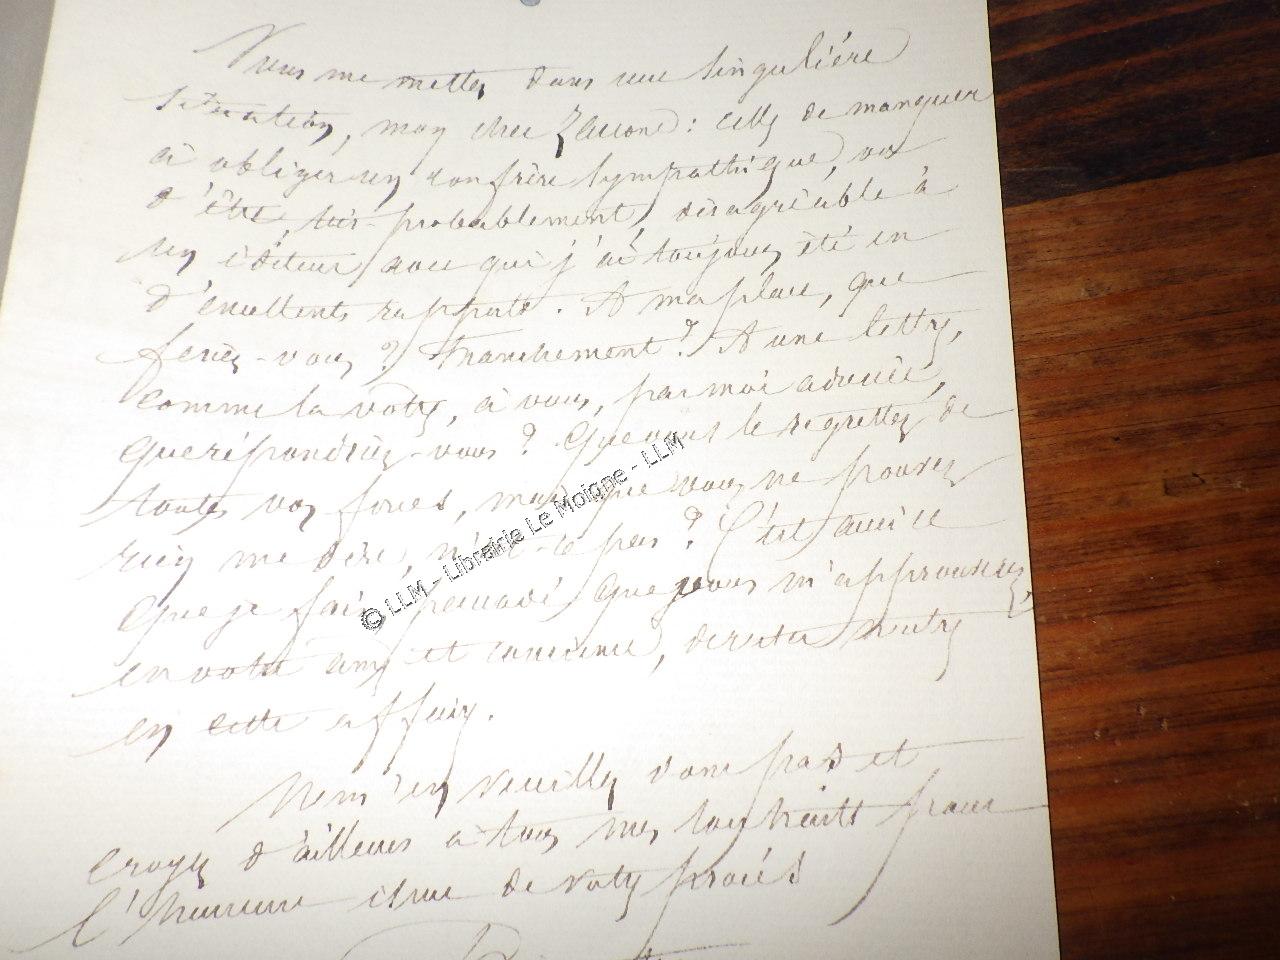 Vous me mettez dans une singulière
situation, mon cher Zaccone : celle de manquer
à obliger un confrère sympathique, ou
d'être, très-probablement, désagréable à
un éditeur avec qui j'ai toujours été en
d'excellents rapports. A ma place, que
feriez-vous ? Franchement ? A une lettre,
comme la votre, à vous, par moi adressée,
que répondriez-vous ? Que vous le regrettez de
toutes vos forces, mais que vous ne pouvez
rien me dire, n'est-ce pas ? C'est aussi ce
que je fais, persuadé que vous m'approuverez,
en votre âme et conscience, de rester neutre
en cette affaire.
Ne m'en veuillez donc pas et
croyez d'ailleurs à tous mes souhaits pour
l'heureuse issue de votre procès
© LLM - Librairie Le Moigne - LLM